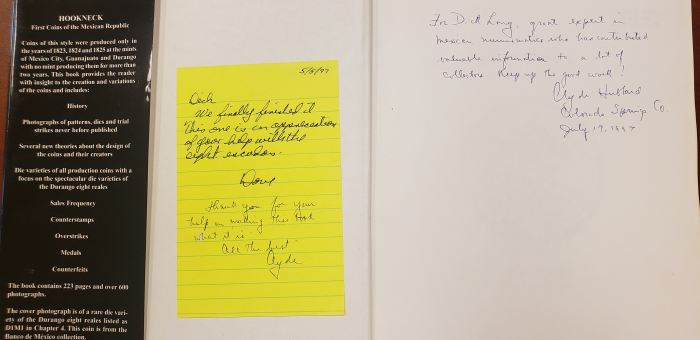 HOOKNECK
First Coins of the Mexican Republic
Coins of this style were produced only in
the years of 1823, 1824 and 1825 at the mints
of Mexico City, Guanajuato and Durango
with no mint producing them for more than
two years. This book provides the reader
with insight to the creation and variations
of the coins and includes:
History
Photographs of patterns, dies and trial
strikes never before published
Several new theories about the design of
the coins and their creators
Die varieties of all production coins with a
focus on the spectacular die varieties of
the Durango eight reales
Sales Frequency
Counterstamps
Overstrikes
Medals
Counterfeits
The book contains 223 pages and over 600
photographs.
The cover photograph is of a rare die vari-
ety of the Durango eight reales listed as
D1M1 in Chapter 4. This coin is from the
Banco de México collection.
5/5/97
Dick
We finally finished it
This one is in appreciation
of your help with the
eight escudos.
Doug
Thank you for your
help in making this book
what it is
All the best
Clyde
For Dick Long, great expert in
Mexican numismatics who has contributed
valuable information to a lot of
collectors Keep up the good work!
Clyde Hubbard
Colorado Springs Co.
July 17, 1997